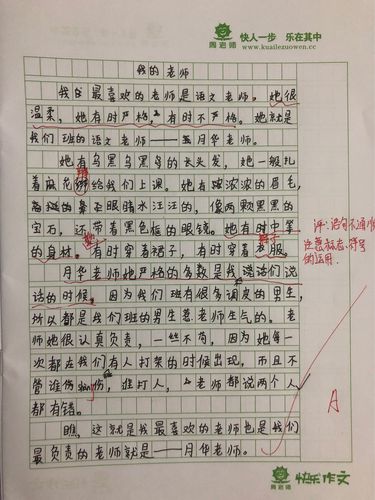 周老师
快人一步 乐在其中
www.kuailezuowen.cc
我的老师
我的最喜欢的老师是语文老师。她很
温柔，她有时严格，有时不严格。她就是
我们班的语文老师——月华老师。
她有乌黑乌黑的长头发，她一般扎
着麻花给我们上课。她有浓浓的眉毛，
眼睛水汪汪的，像两颗黑黑的
宝石，还带着黑色框的眼镜。她有时中等
的身材。有时穿着裙子，有时穿着色服。
裤子
月华老师她严格的多数是我说话们说
话的时候。因为我们班有很多调皮的男生，
所以都是我们班的男生惹老师生气的。老
师她很认真负责，一丝不苟，因为她每一
次都在我们有人打架的时候出现，而且不
管谁伤shang伤，谁打人，老师都说两个人
都有错。
瞧，这就是我最喜欢的老师也是我们
最负责的老师就是——月华老师。
评：语句不通顺
注意标点符号
的运用。
A
快乐作文